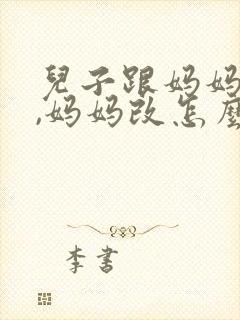 兒子跟妈妈
,妈妈改怎麼
李書